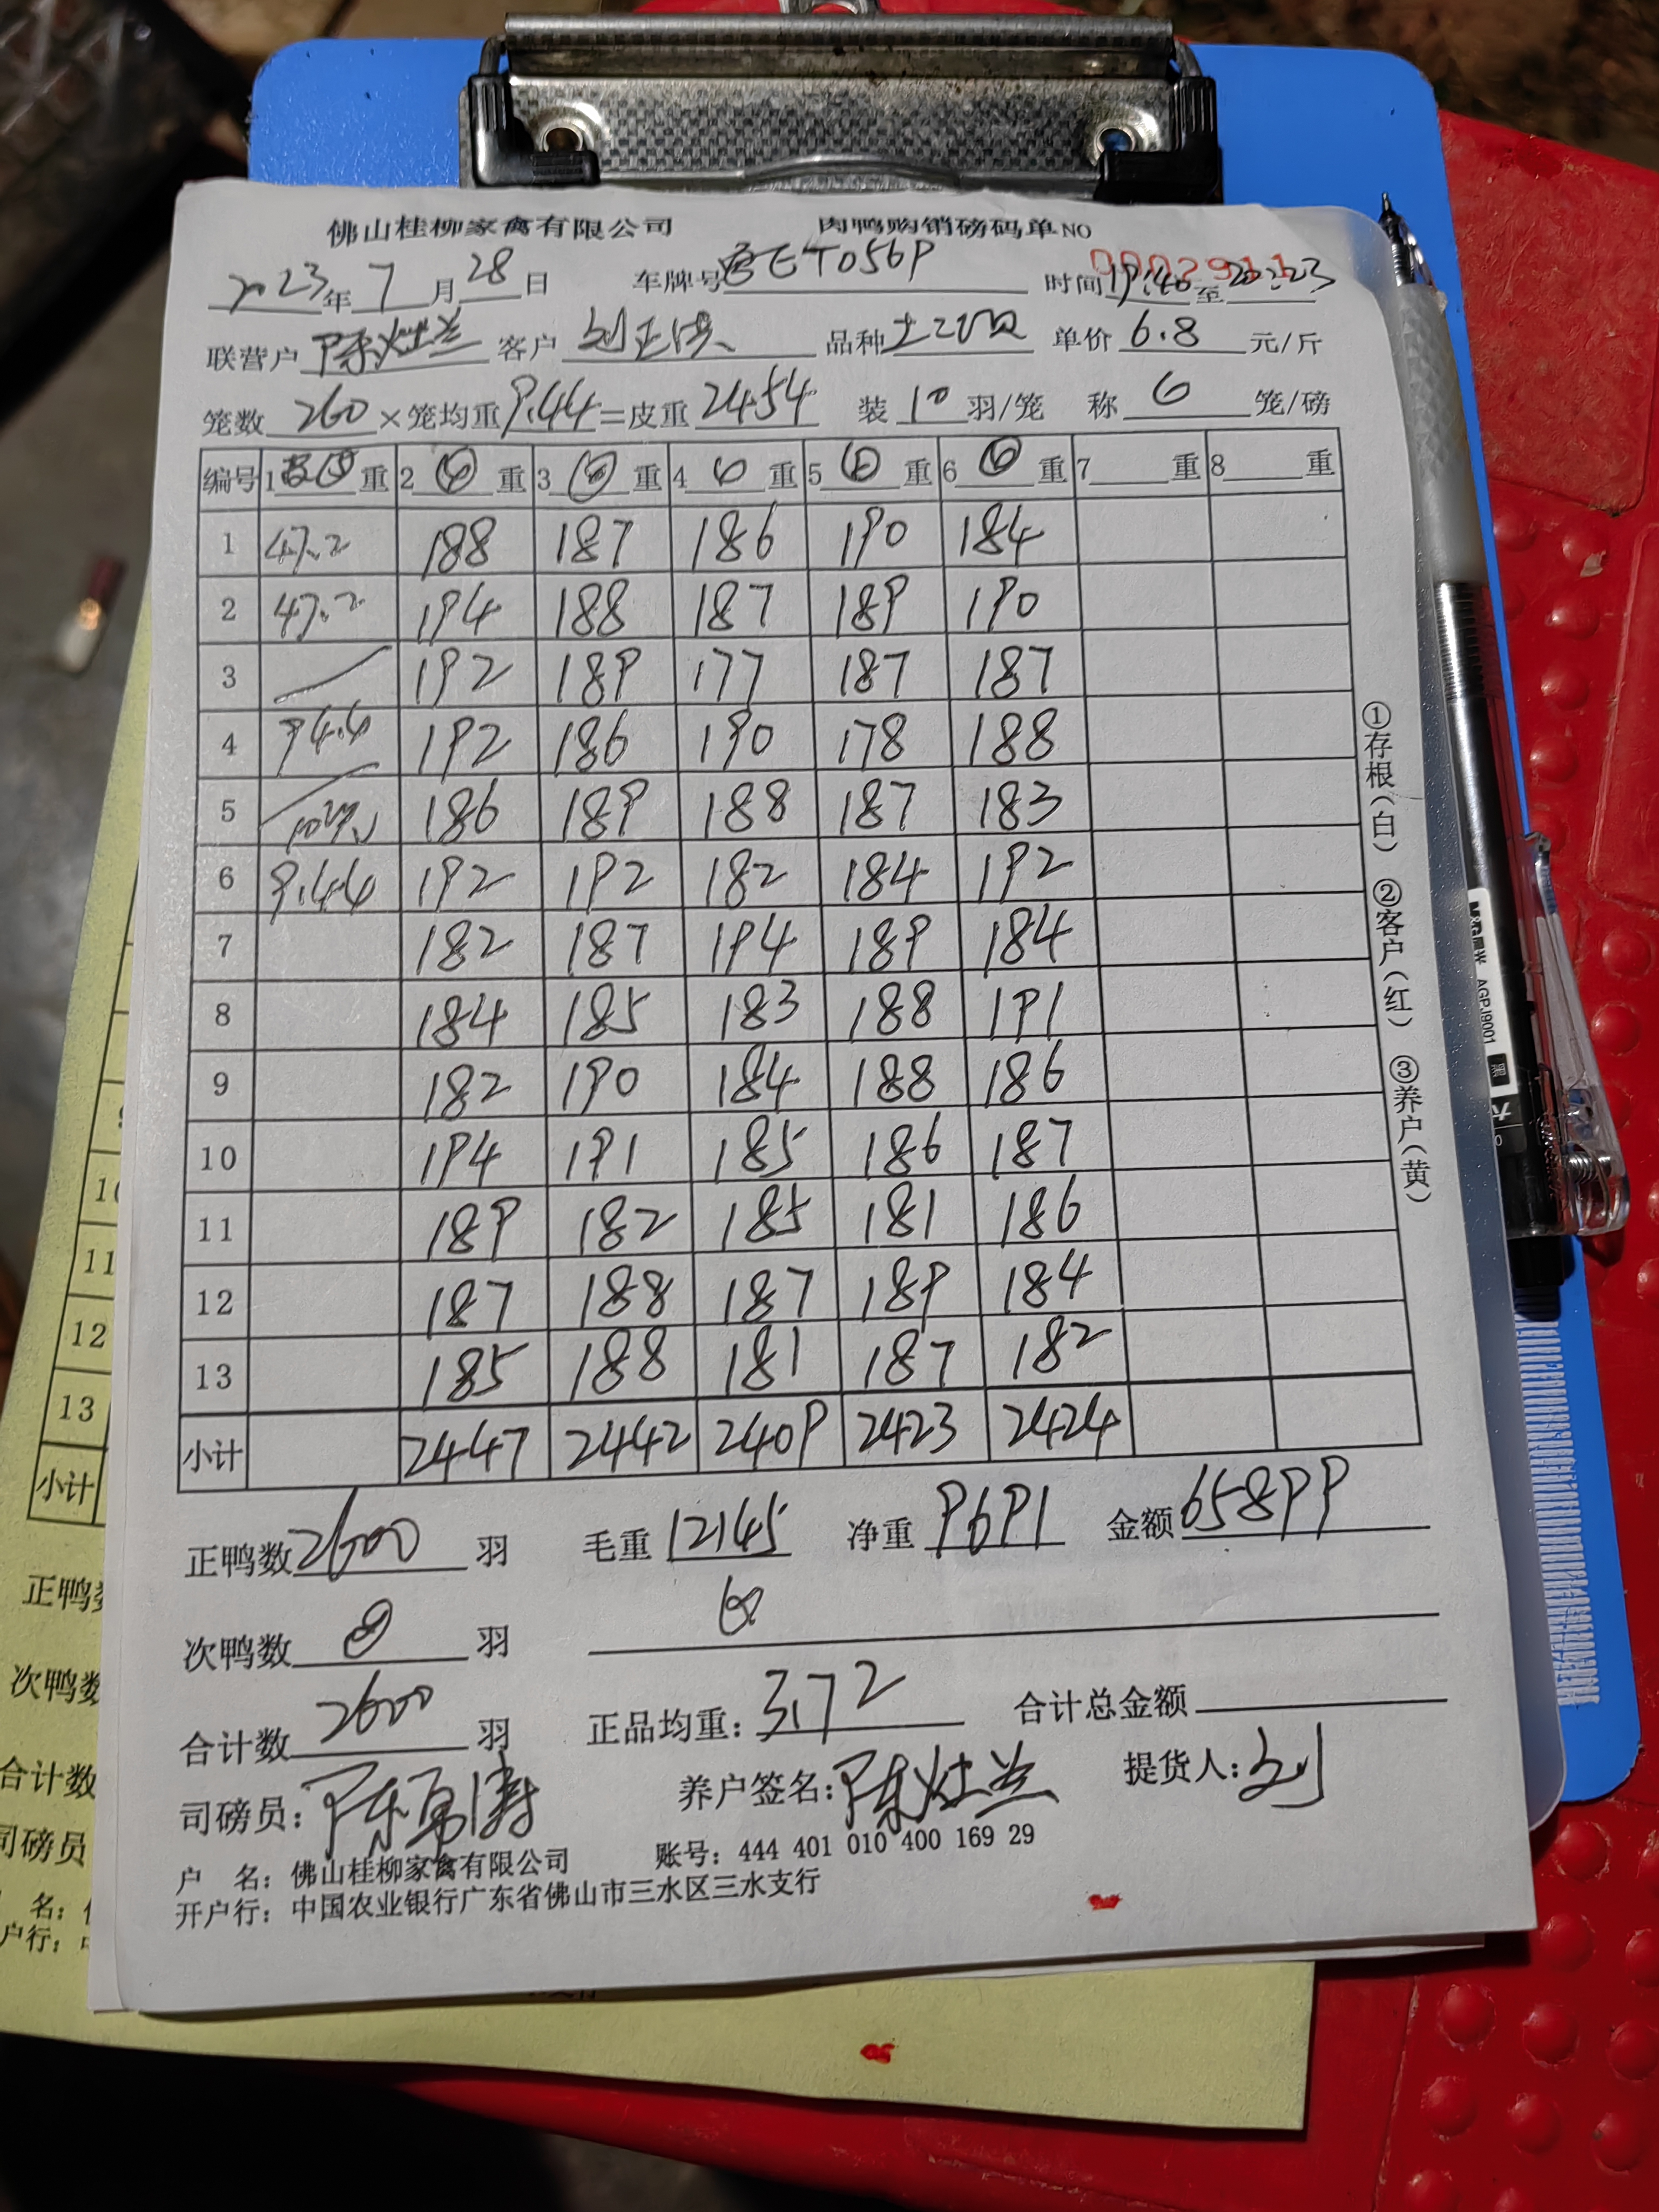 佛山桂柳家禽有限公司 肉鸭购销磅码单 NO 0002911
2023年 7月 28日 车牌号 ET056P 时间 19:40 至 20:23
联营户 陈灶兰 客户 刘正洪 品种 单价 6.8 元/斤
笼数 260 × 笼均重 9.44 = 皮重 2454 装 10 羽/笼 称 6 笼/磅
编号 1 重 2 重 3 重 4 6 重 5 重 6 重 7 重 8 重
1 47.2 188 187 186 190 184
2 47.2 194 188 187 189 190
3 192 189 177 187 187
4 94.4 192 186 190 178 188
5 186 189 188 187 183
6 9.44 192 192 182 184 192
7 182 187 194 189 184
8 184 185 183 188 191
9 182 190 184 188 186
10 194 191 185 186 187
11 189 182 185 181 186
12 187 188 187 189 184
13 185 188 181 187 182
小计 2447 2442 2409 2423 2424
正鸭数 2600 羽 毛重 12145 净重 9691 金额 65899
次鸭数 0 羽
合计数 2600 羽 正品均重: 3.72 合计总金额
司磅员: 陈 养户签名: 陈灶兰 提货人: 刘
户 名: 佛山桂柳家禽有限公司 账号: 444 401 010 400 169 29
开户行: 中国农业银行广东省佛山市三水区三水支行
①存根(白) ②客户(红) ③养户(黄)
M&G晨光 AGPJ9001 黑
11
12
13
小计
正鸭
次鸭数
合计数
司磅员
名:
户行: